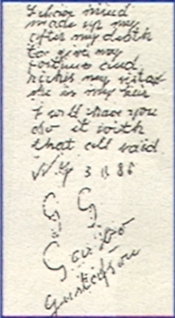 I have mind
made up my
after my death
to give my
fortune and
riches my
she is my heir
I will have you
do it with
that all said
N.Y 3 11 88
G G